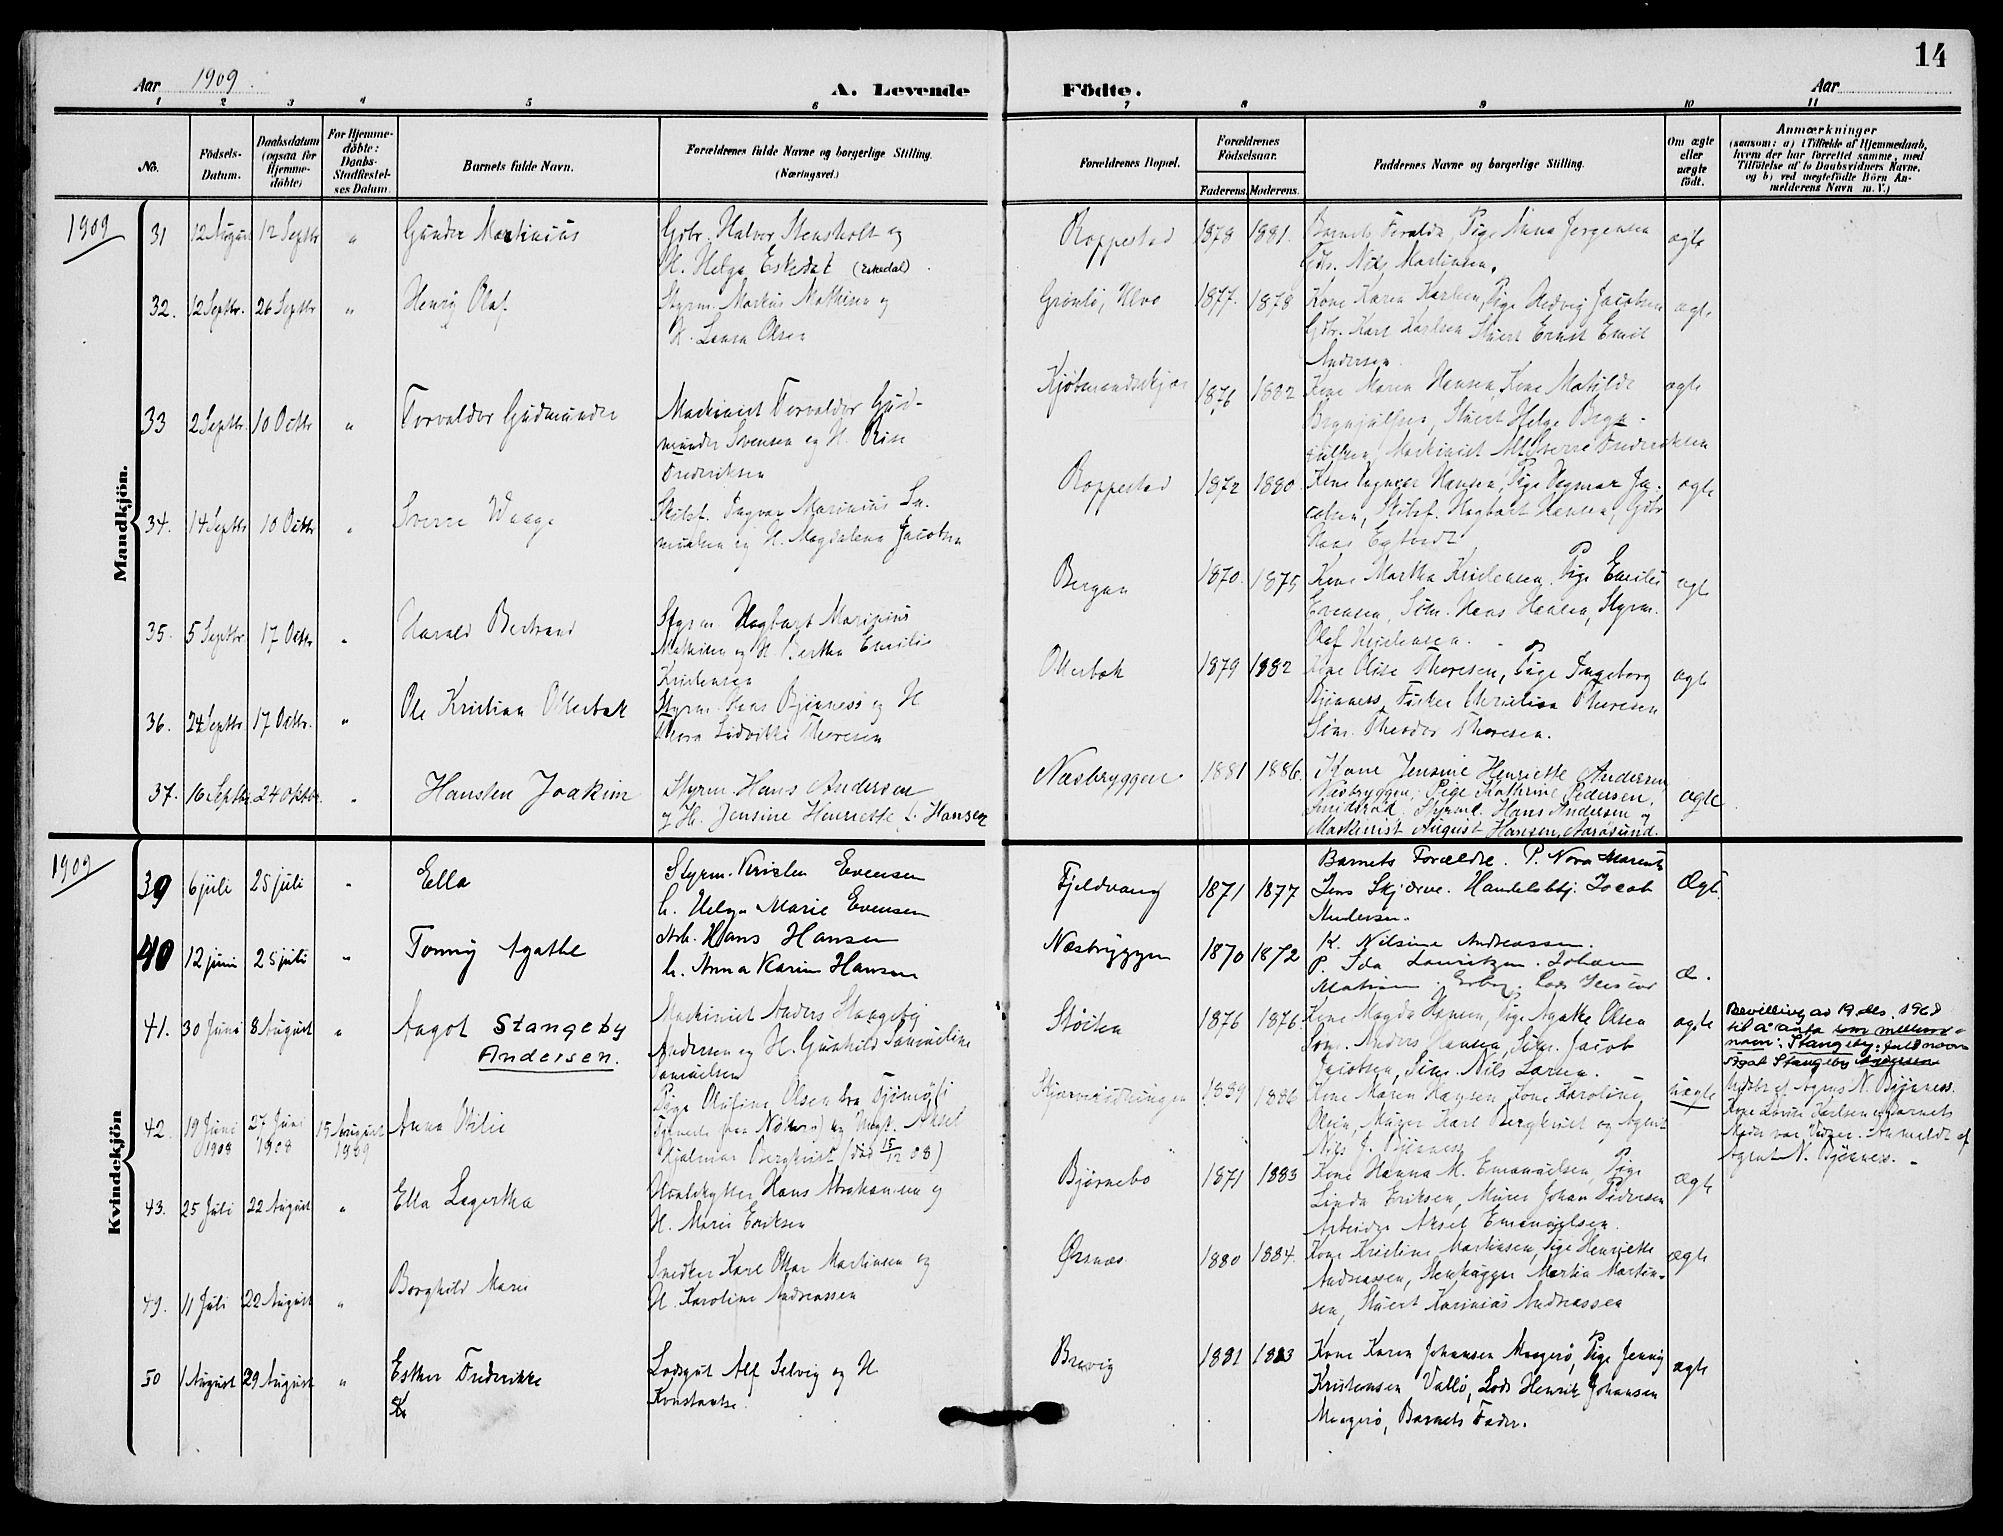 14
Aar 1909.
A. Levende Födte.
Aar
1 2 3 4 5 6 7 8 9 10 11
No.
Födsels-Datum.
Daabsdatum (ogsaa for Hjemme-döbte)
For Hjemme-döbte: Daabs-Stadfæstel-ses Datum.
Barnets fulde Navn.
Forældrenes fulde Navne og borgerlige Stilling. (Næringsvei.)
Forældrenes Bopæl.
Forældrenes Födselsaar.
Faderens. Moderens.
Faddernes Navne og borgerlige Stilling.
Om ægte eller uægte födt.
Anmærkninger
(saasom: a) i Tilfælde af Hjemmedaab,
hvem der har forrettet samme, med
Tilföielse af to Daabsvidners Navne,
og b) ved uægtefödte Börn An-
melderens Navn m. V.)
1909
Mandkjön.
31 12 August 12 Septbr " Gunder Martinius
Gbr. Halvor Stensholt og
H. Helga Eskedal (Eskedal).
Roppestad 1878 1881.
Barnets Foraldre, Pige Anna Jorgensen
Gbr. Nils Martinsen.
ægte
32. 12 Septbr. 26 Septbr " Henry Olaf
Styrm. Markus Mathisen og
H. Laura Olsen
Grönlö, Ulvø 1877. 1878
Kone Karen Karlsen, Pige Hedvig Jacobsen
Gbr. Karl Karlsen Stuert Ernst Emil
Andersen.
ægte
33 2 Septbr. 10 Octbr " Torvaldor Gudmunder
Maskinist Torvaldor Gud-
munder Svensen og H.
Fredriksen
Kjöbmandsskjær 1876 1882
Kone Maren Hansen, Kone Matilde
Brynjulfsen, Stuert Helge Bryn-
julfsen, Maskinist Alf Sverre Fredriksen
ægte
34. 14 Septbr 10 Octbr " Sverre Waage
Skibsf. Ingvar Marinius Sa-
muelsen og H. Magdalena Jacobsen
Roppestad 1872 1880.
Kone Hansen, Pige Dagmar Ja-
cobsen, Skibsf. Hagbart Hansen, Gbr
ægte
35. 5 Septbr. 17 Octbr " Harald Bertrand
Styrm. Hagbart Marinius
Mathisen og H. Bertha Emilie
Kristensen
Bergan 1870. 1875
Kone Martha Kristensen, Pige Emilie
Evensen, Söm. Hans Hansen, Styrm.
Olaf Kristensen.
ægte
36. 24 Septbr 17 Octbr. " Ole Kristian Otterbek
Styrm. Hans Bjönness og H
Thora Ludvikke Thoresen
Otterbek 1879 1882
Kone Olise Thoresen, Pige Ingeborg
Bjönness, Fisker Christian Thoresen
Söm. Theodor Thoresen.
ægte
37. 16 Septbr. 24 Oktbr. " Hansten Joakim
Styrm. Hans Andersen
og H. Jensine Henriette f. Hansen
Næsbryggen 1881 1886.
Kone Jensine Henriette Andersen
Næsbryggen, Pige Kathrine Pedersen,
Smidsröd. Styrm. Hans Andersen og
Maskinist August Hansen, Aarösund.
ægte
1909
Kvindekjön
39 6 juli 25 juli " Ella
Styrm. Kristen Evensen
h. Helga Marie Evensen
Fjeldvang 1871 1877
Barnets Forældre. P. Nora
Jens Skjærve. Handelsbtj. Jacob
Andersen.
Ægt.
40 12 juni 25 juli " Tonny Agathe
Arb. Hans Hansen
h. Anna Karin Hansen
Næsbryggen 1870 1872
K. Nilsine Andreassen.
P. Ida Lauritzen. Johan
æ.
41. 30 Juni 8 August " Aagot Stangeby
Andersen.
Maskinist Anders Stangeby
Andersen og H. Gunhild Samueline
Samuelsen
Stöiten 1876 1876
Kone Magda Hansen, Pige Agathe Olsen
Söm. Anders Hansen, Söm. Jacob
Jacobsen, Söm. Nils Larsen.
ægte
Bevilling av 19 des. 1968
til å anta som mellom-
navn: Stangeby: fullt navn
Aagot Stangeby Andersen
42. 19 Juni 1908 27 Juni 1908 15 August 1909 Anna Otilie
Pige Olufine Olsen fra Tjömö (i
Tjeneste paa Nötterö) og Ungk. Aksel
Hjalmar Bergkvist (död 15/12 08)
1889 1886
Kone Maren Hansen, Kone Karoline
Olsen, Murer Karl Bergkvist og Agent
Nils J. Bjönness
uægte
Hjdbt af Agens N. Bjönness.
Kone Lovise Karlsen og Barnets
Moder var Vidner. Anmeldt af
Agent N. Bjönness.
43. 25 Juli 22 August " Ella Lagertha
Hvalskytter Hans Abrahamsen og
H. Marie Eriksen
Björnebo 1871 1883
Kone Hanna M. Emanuelsen, Pige
Linda Eriksen, Murer Johan Pedersen
Arbeider Aksel Emanuelsen.
Ægte
49. 11 Juli 22 August " Borghild Marie
Snedker Karl Ottar Martinsen og
H. Karoline Andreassen
Ørsnes 1880 1884.
Kone Kristine Martinsen, Pige Henriette
Andreassen, Stenhugger Martin Martin-
sen, Stuert Karinius Andreassen
ægte
50 1 August 29 August " Esther Fredrikke
Lodsgut Alf Selvig og H
Konstanse.
Brevig 1881 1883
Kone Karen Johansen Maagerö, Pige Jenny
Kristensen Vallö, Lods Henrik Johansen
Maagerö, Barnets Fader.
ægte